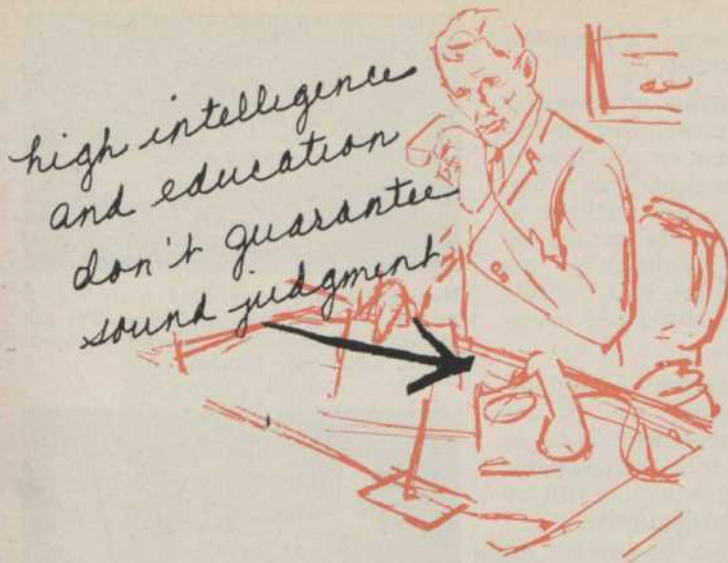 high intelligence
and education
don't guarantee
sound judgment